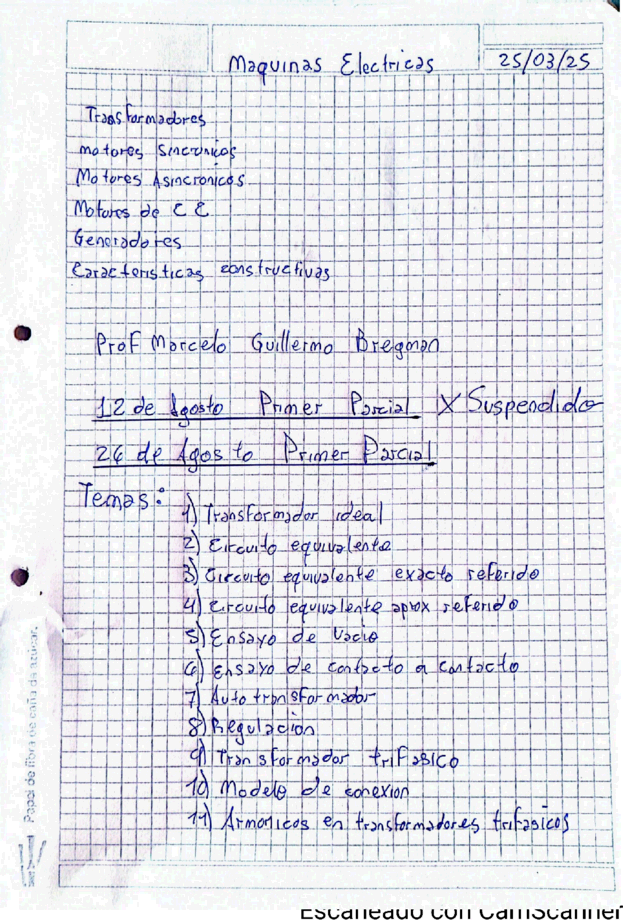 Maquinas Electricas
25/03/25
Transformadores
motores Sincronicos
Motores Asincronicos
Motores de C C
Generadores
Caracteristicas constructivas
Prof Marcelo Guillermo Bregman
12 de Agosto Primer Parcial X Suspendido
26 de Agosto Primer Parcial
Temas:
1) Transformador ideal
2) Circuito equivalente
3) Circuito equivalente exacto referido
4) Circuito equivalente aprox referido
5) Ensayo de Vacio
6) Ensayo de contacto a contacto
7) Auto transformador
8) Regulacion
9) Transformador trifasico
10) Modelo de conexion
11) Armonicos en transformadores trifasicos
Papel de fibra de caña de azúcar.
Escaneado con CamScanner